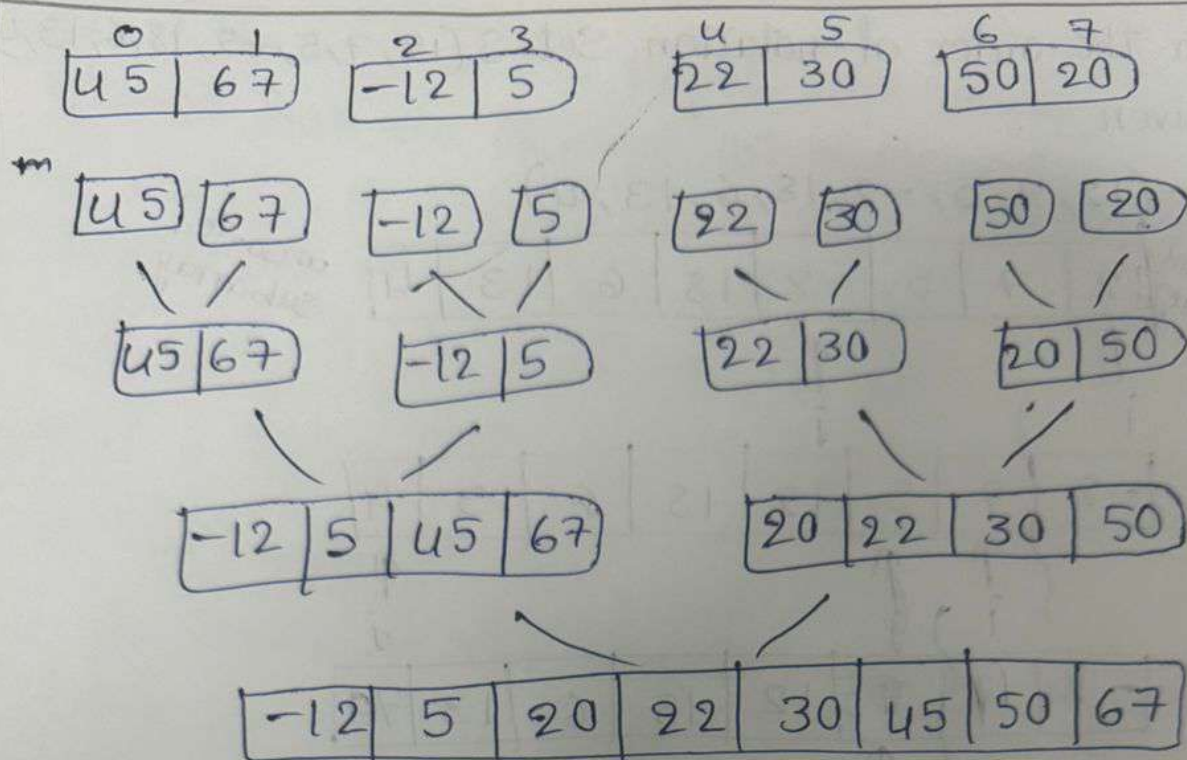 0 1 2 3 4 5 6 7
45 67 -12 5 22 30 50 20
45 67 -12 5 22 30 50 20
45 67 -12 5 22 30 20 50
-12 5 45 67 20 22 30 50
-12 5 20 22 30 45 50 67